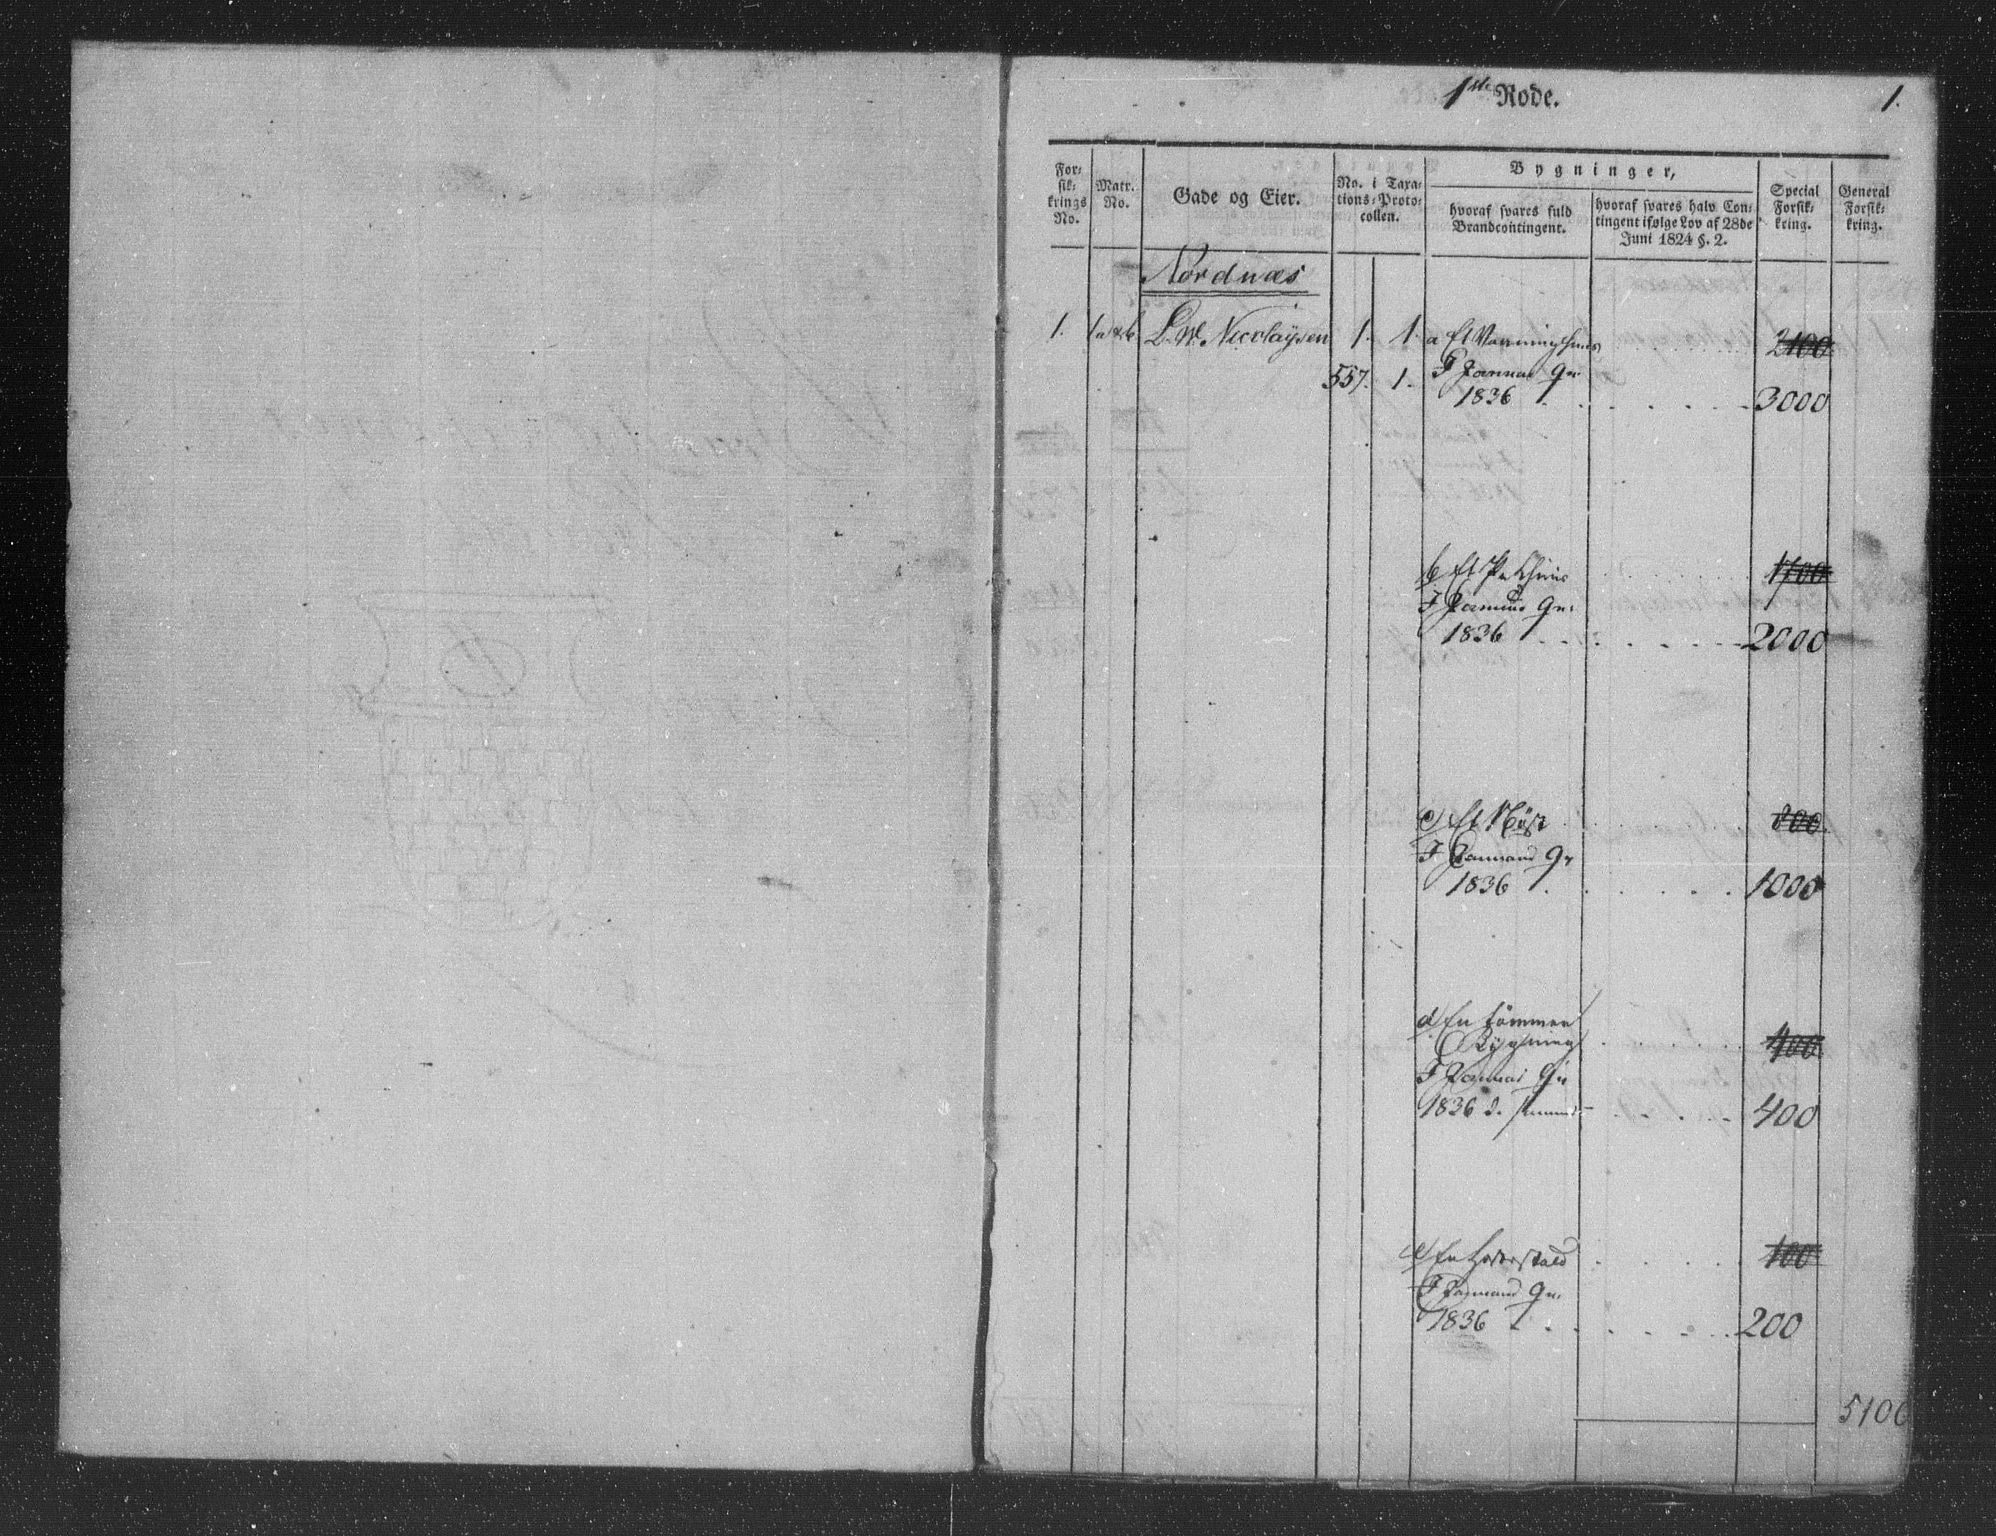 1ste Rode.
1.
For-
sik-
krings
No.
Matr.
No.
Gade og Eier.
No. i Taxa-
tions-Proto-
collen.
Bygninger,
hvoraf svares fuld
Brandcontingent.
hvoraf svares halv Con-
tingent ifølge Lov af 28de
Juni 1824 §. 2.
Special
Forsik-
kring.
General
Forsik-
kring.
Nordnæs
1. 1 a & b L. W. Nicolaÿsen 1. 1. a Et Vaaninghuus 2100
557. 1.
1836 3000
b Et Pakhuus 1700
1836 2000
c) Et Nöst 800
1836 1000
d) En tömmer
Bygning 400
1836 400
e) En Hestestald 100
1836 200
5100